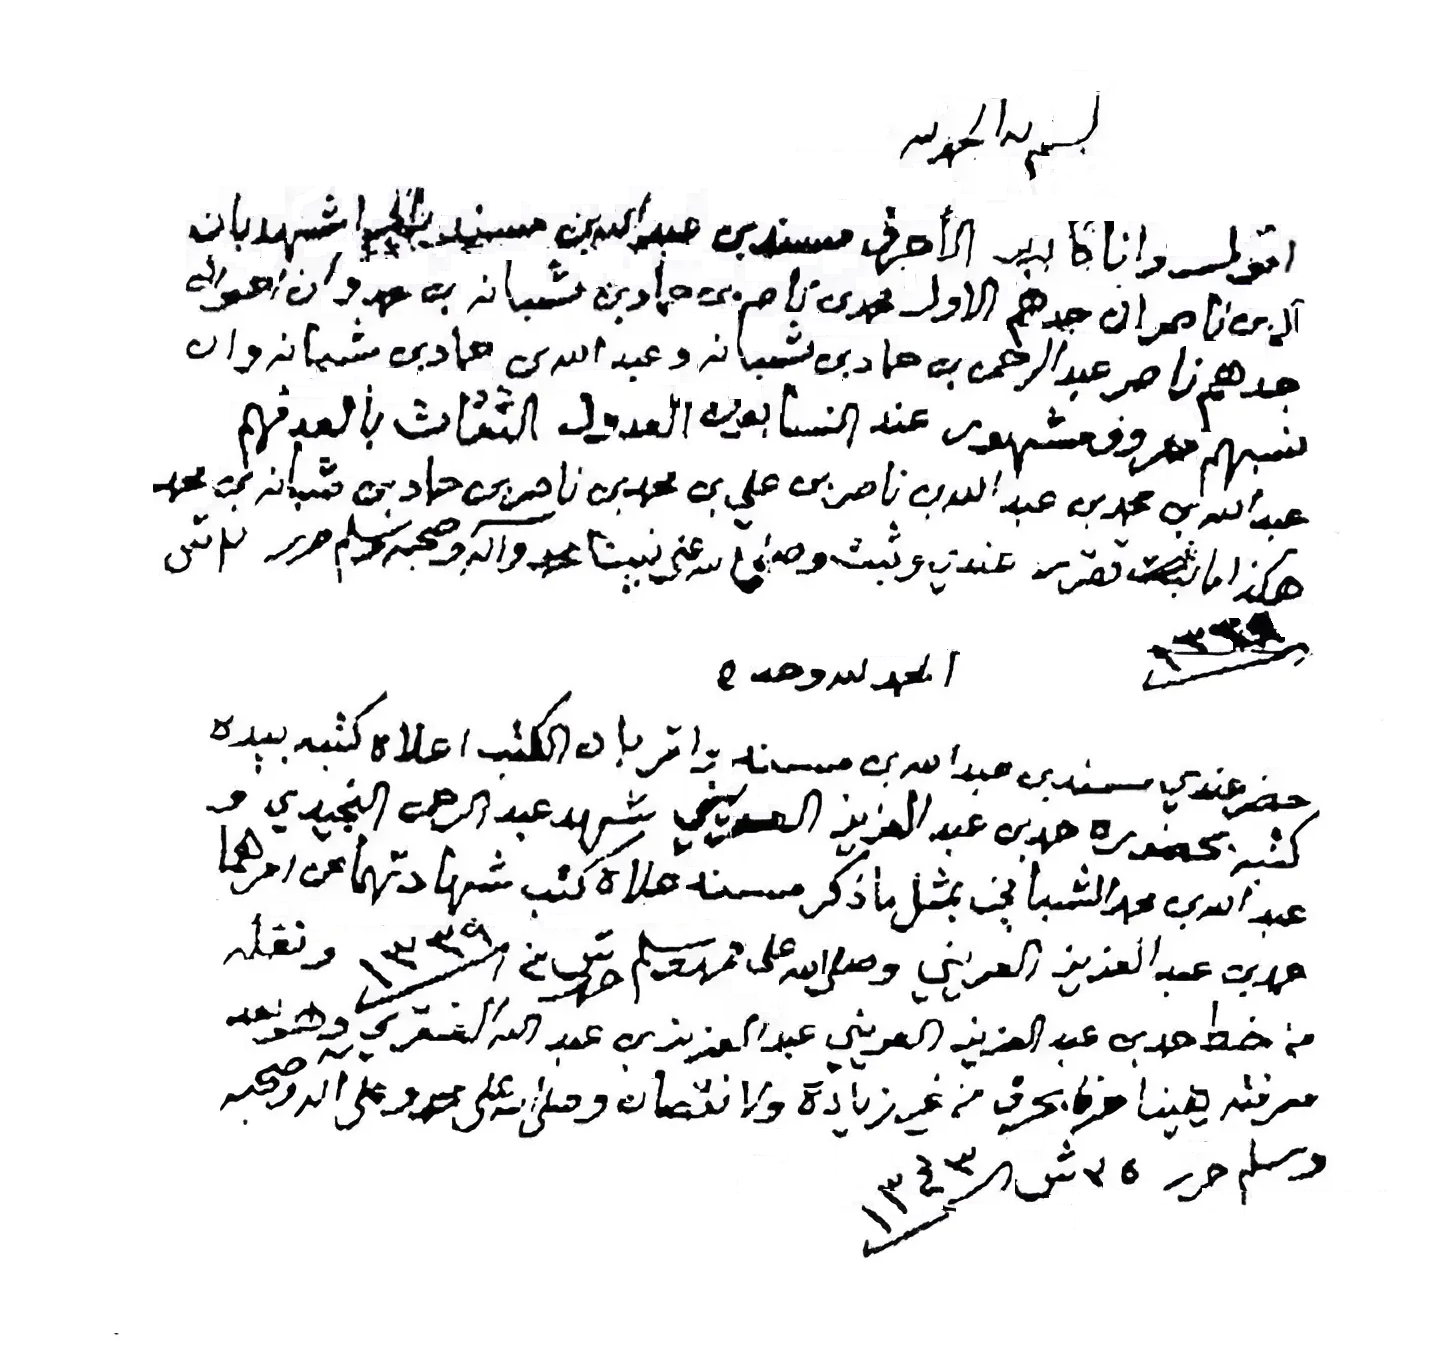 بسم الله الحمد لله
اقول وانا كاتبه الأحرف مسند بن عبدالله بن مسند اشهد بان
ال بن ناصر ان جدهم الاول محمد بن ناصر بن حماد بن شبانه بن محمد وان اخوان
جدهم ناصر عبد الرحمن بن حماد بن شبانه وعبد الله بن حماد بن شبانه وان
نسبهم معروف مشهور عند النسابون العدول الثقات بالعد فهم
عبدالله بن محمد بن عبد الله بن ناصر بن علي بن محمد بن ناصر بن حماد بن شبانه بن محمد
هكذا ما تقرر عندي وثبت وصلى الله على نبينا محمد واله وصحبه وسلم حرر ش
١٣٣٩
الحمد لله وحده
حضر عندي مسند بن عبد الله بن مسند واقر بان الكتب اعلاه كتبه بيده
كتبه بحضوره حمد بن عبد العزيز العريني شهد عبد الرحمن النجيدي و
عبد الله بن محمد الشباني بمثل ما ذكر مسند علاه كتب شهادتهما عن امرهما
حمد بن عبد العزيز العريني وصلى الله على محمد وسلم ١٣٣٩ ونقله
من خط حمد بن عبد العزيز العريني عبد العزيز بن عبد الله الفقري وهو بعد
معرفته يقينا حرفا بحرف من غير زيادة ولا نقصان وصلى الله على محمد وعلى اله وصحبه
وسلم حرر ٢٥ ش ١٣٤٣